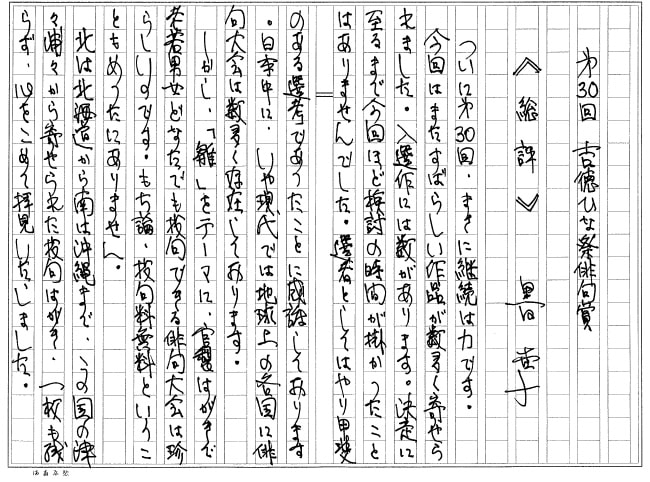 第30回 吉徳ひな祭俳句賞
《総評》 黒田杏子
ついに第30回。まさに継続は力です。
今回はまたすばらしい作品が数多く寄せら
れました。入選作には数があります。決定に
至るまで今回ほど検討の時間が掛かったこと
はありませんでした。選者としてはやり甲斐
のある選考であったことに感謝しております
。日本中に、いや現代では地球上の各国に俳
句大会は数多く存在しております。
しかし、「雛」をテーマに、官製はがきで
老若男女どなたでも投句できる俳句大会は珍
らしいのです。もち論、投句料無料というこ
ともめったにありません。
北は北海道から南は沖縄まで、この国の津
々浦々から寄せられた投句はがき、一枚も残
らず、心をこめて拝見いたしました。